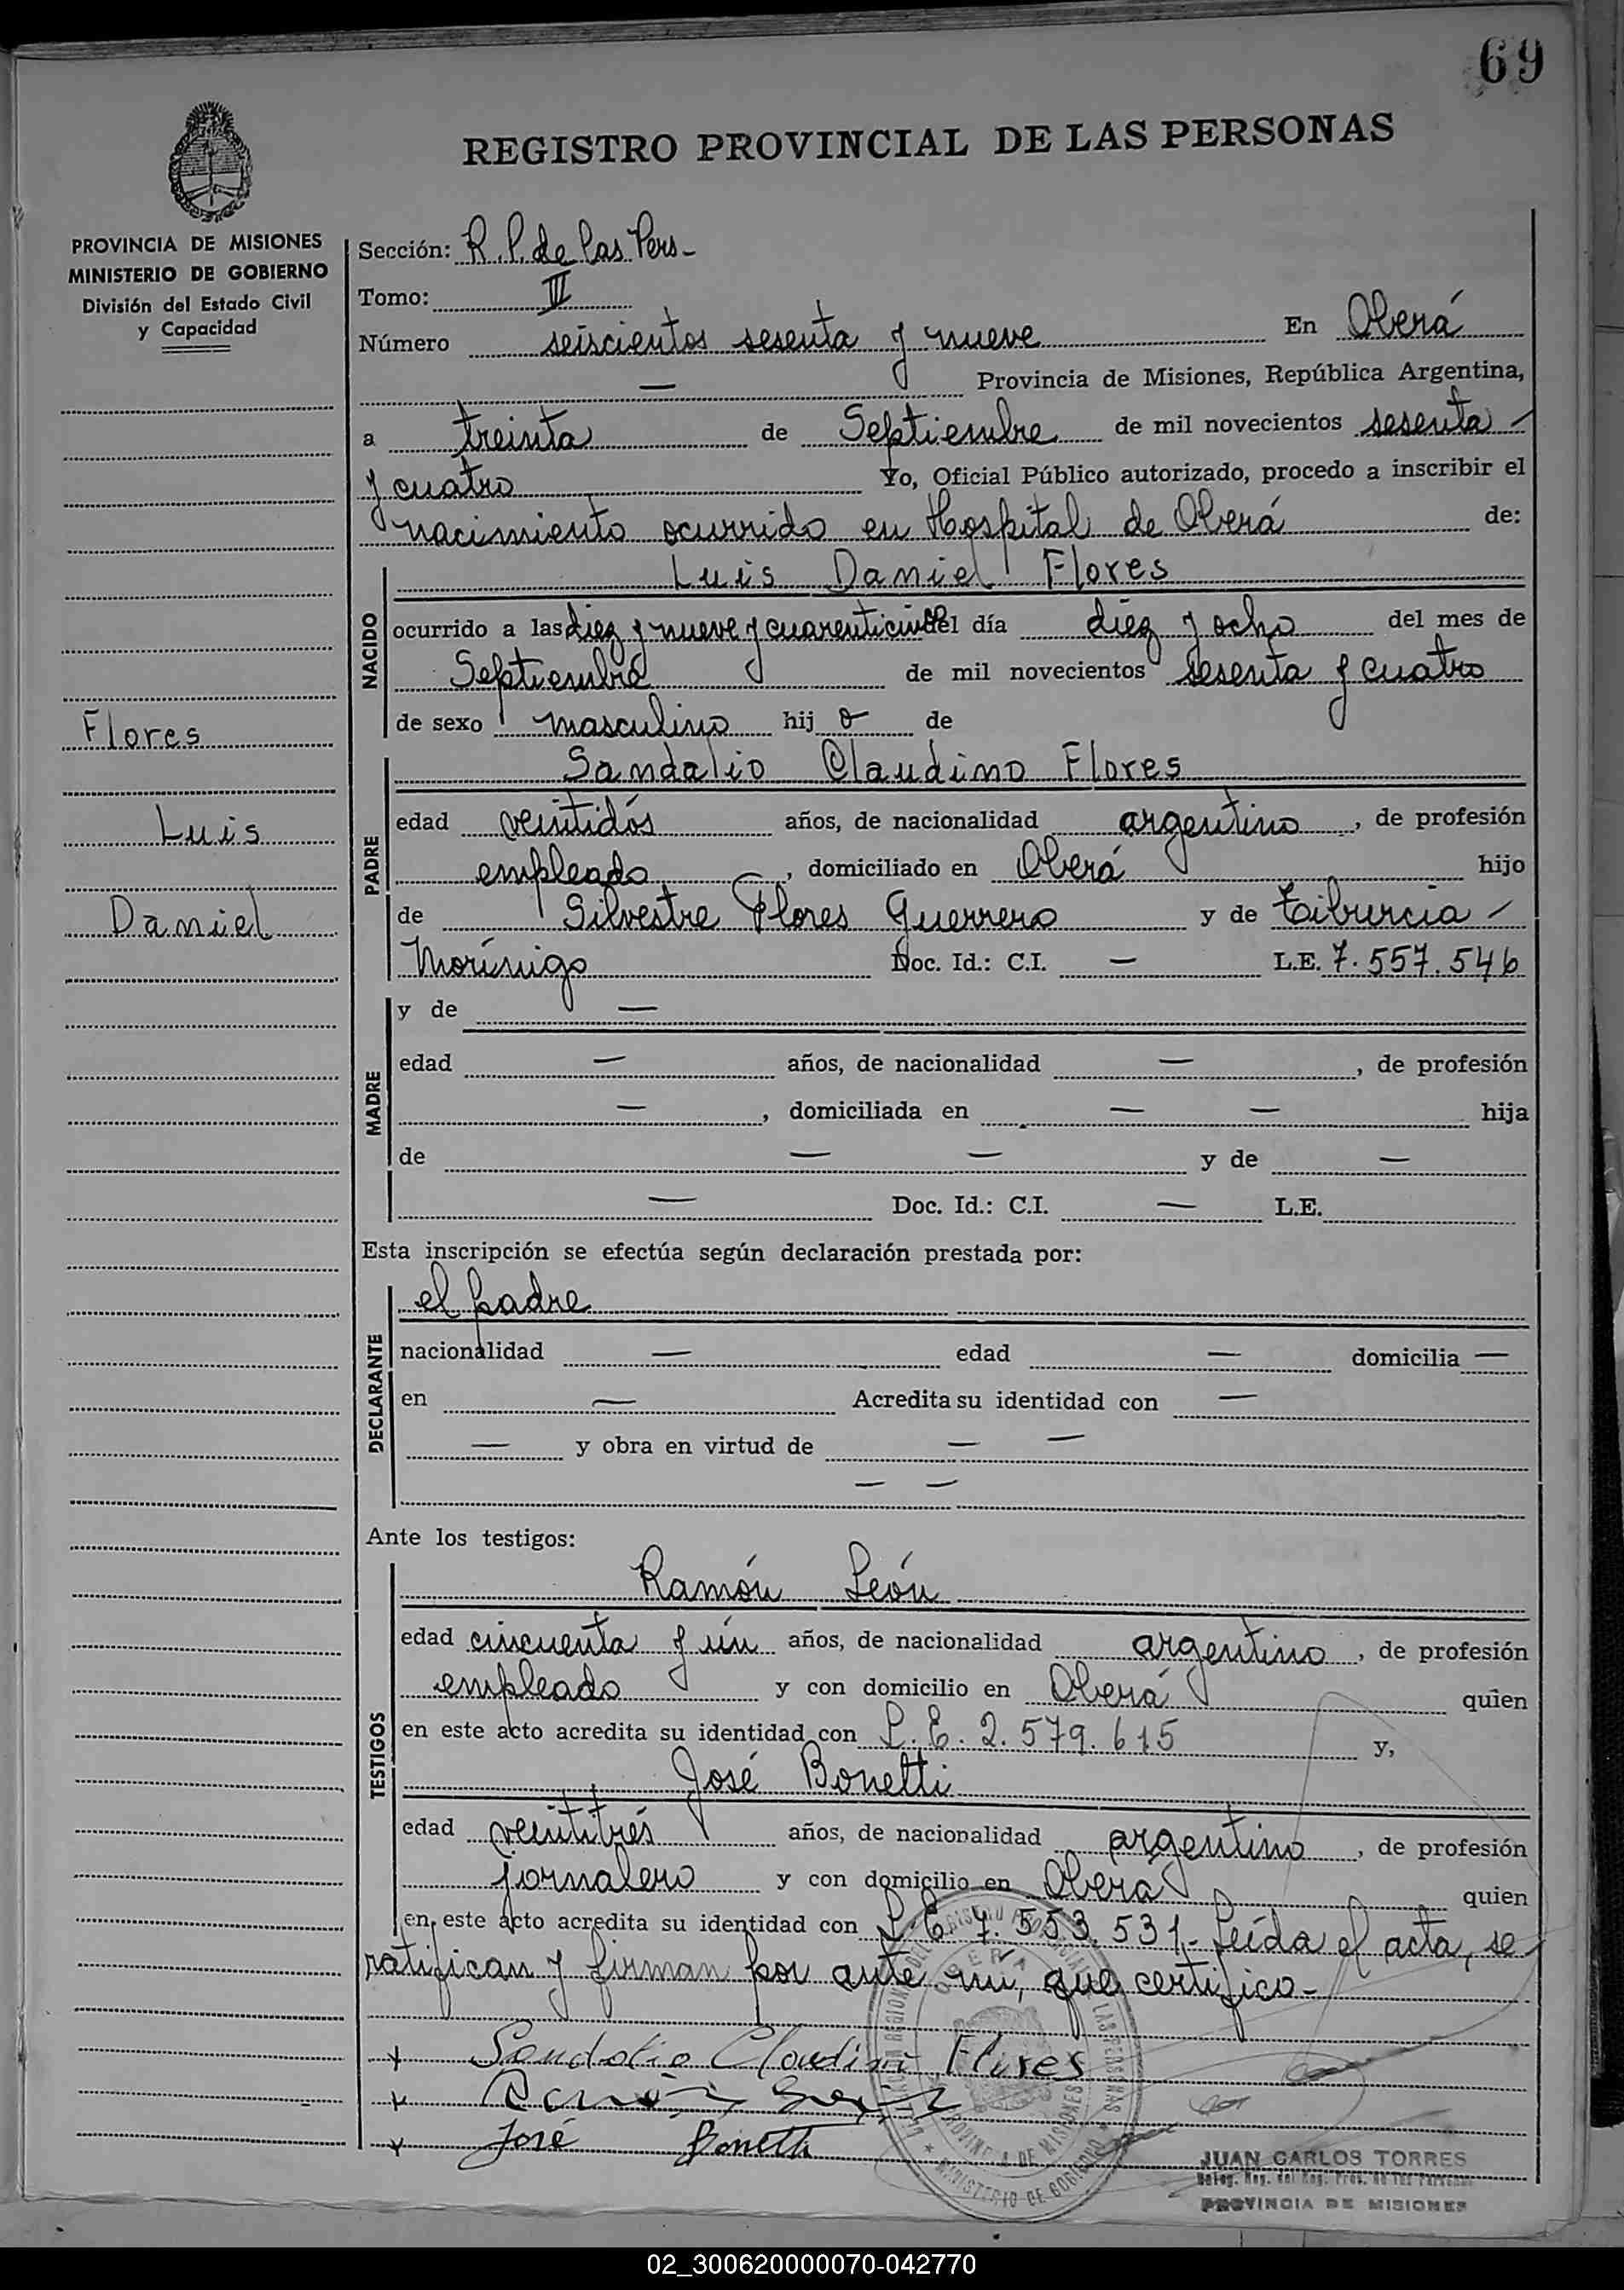 69
REGISTRO PROVINCIAL DE LAS PERSONAS
PROVINCIA DE MISIONES
MINISTERIO DE GOBIERNO
División del Estado Civil
y Capacidad
Flores
Luis
Daniel
Sección: R. P. de las Pers-
Tomo: III
Número seiscientos sesenta y nueve En Oberá
— Provincia de Misiones, República Argentina,
a treinta de Septiembre de mil novecientos sesenta
y cuatro Yo, Oficial Público autorizado, procedo a inscribir el
nacimiento ocurrido en Hospital de Oberá de:
NACIDO
Luis Daniel Flores
ocurrido a las diez y nueve y cuarenticinco del día diez y ocho del mes de
Septiembre de mil novecientos sesenta y cuatro
de sexo masculino hijo de
PADRE
Sandalio Claudino Flores
edad veintidós años, de nacionalidad argentino, de profesión
empleado, domiciliado en Oberá hijo
de Silvestre Flores Guerrero y de Tiburcia
Morínigo Doc. Id.: C.I. — L.E. 7.557.546
MADRE
y de —
edad — años, de nacionalidad —, de profesión
—, domiciliada en — — hija
de — — y de —
— Doc. Id.: C.I. — L.E.
Esta inscripción se efectúa según declaración prestada por:
DECLARANTE
el padre
nacionalidad — edad — domicilia —
en — Acredita su identidad con —
— y obra en virtud de — —
— —
Ante los testigos:
TESTIGOS
Ramón León
edad cincuenta y ún años, de nacionalidad argentino, de profesión
empleado y con domicilio en Oberá quien
en este acto acredita su identidad con L.E. 2.579.615 y,
José Bonetti
edad veintitrés años, de nacionalidad argentino, de profesión
jornalero y con domicilio en Oberá quien
en este acto acredita su identidad con L.E. 7.553.531.- Leída el acta, se
ratifican y firman por ante mi, que certifico-
Sandalio Claudino Flores
Ramón León
José Bonetti
OBERA
PROVINCIA DE MISIONES
MINISTERIO DE GOBIERNO
JUAN CARLOS TORRES
PROVINCIA DE MISIONES
02_300620000070-042770